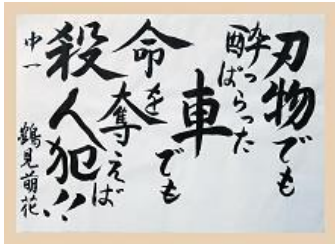 刃物でも
酔っぱらった
車でも
命を
奪えば
殺人犯!!
中一
鶴見萌花